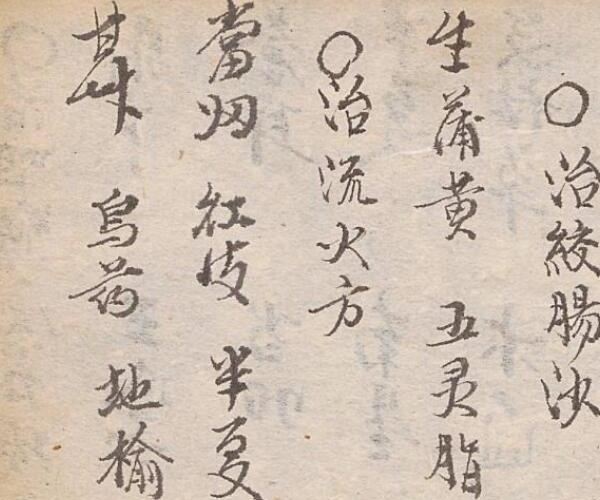 ○治絞腸沙
生蒲黄 五灵脂
○治流火方
當归 红皮 半夏
甘草 烏药 地榆